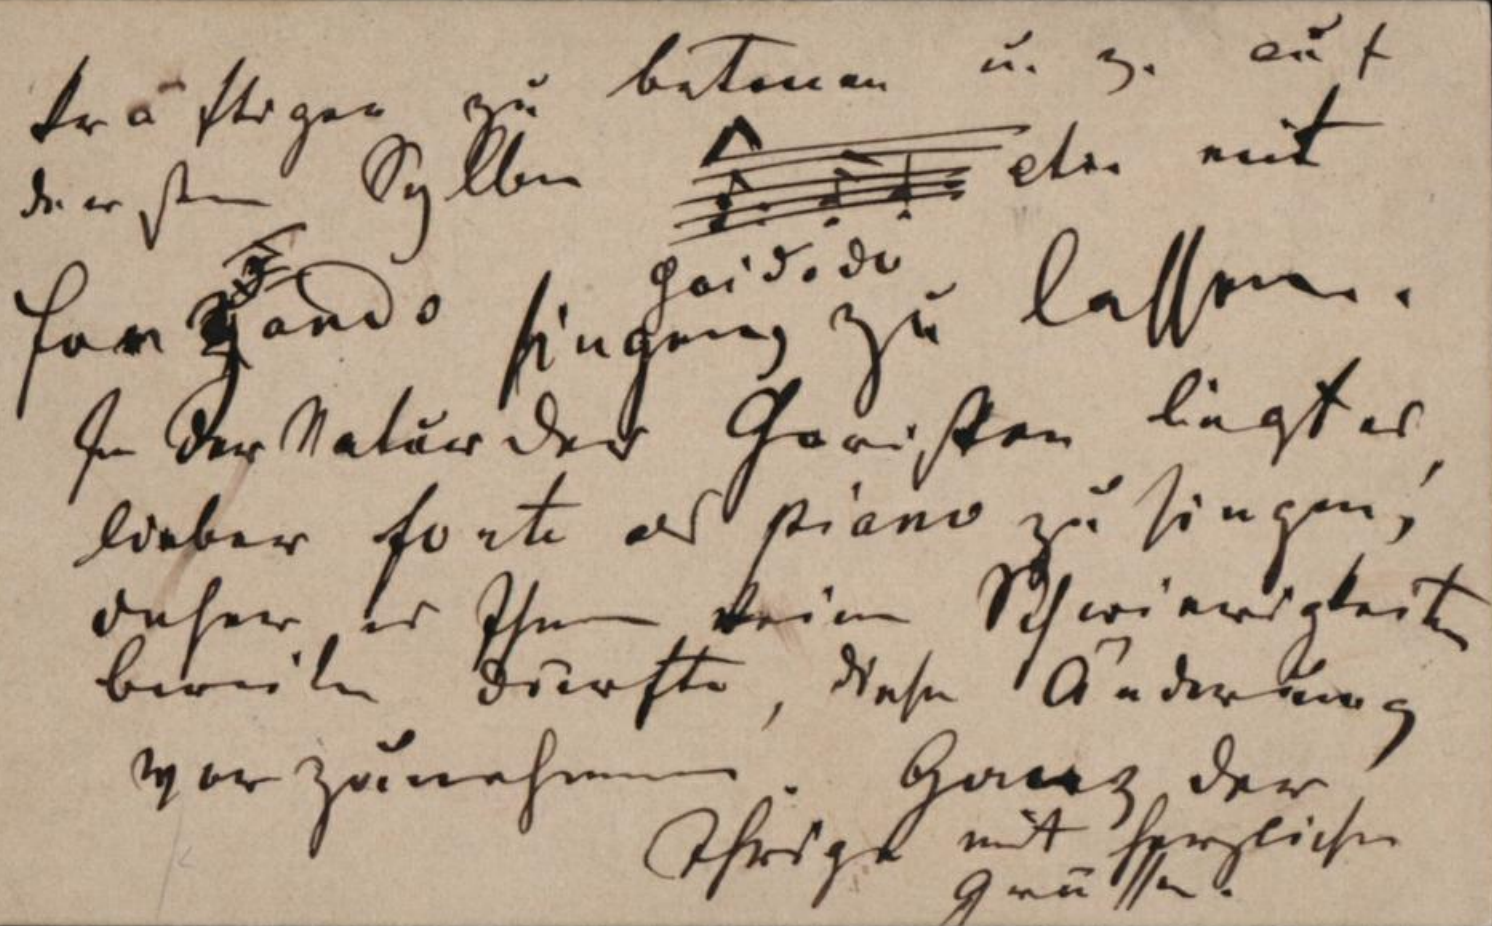 kräftiger zu betonen u. z. auf
der ersten Sylbe etc. mit
Haidodo
singen zu lassen.
In der Natur der Choristen liegt es,
lieber forte als piano zu singen,
daher es Ihnen keine Schwierigkeiten
bereiten dürfte, diese Änderung
vorzunehmen. Ganz der
Ihrige mit herzlichen
Grüssen.